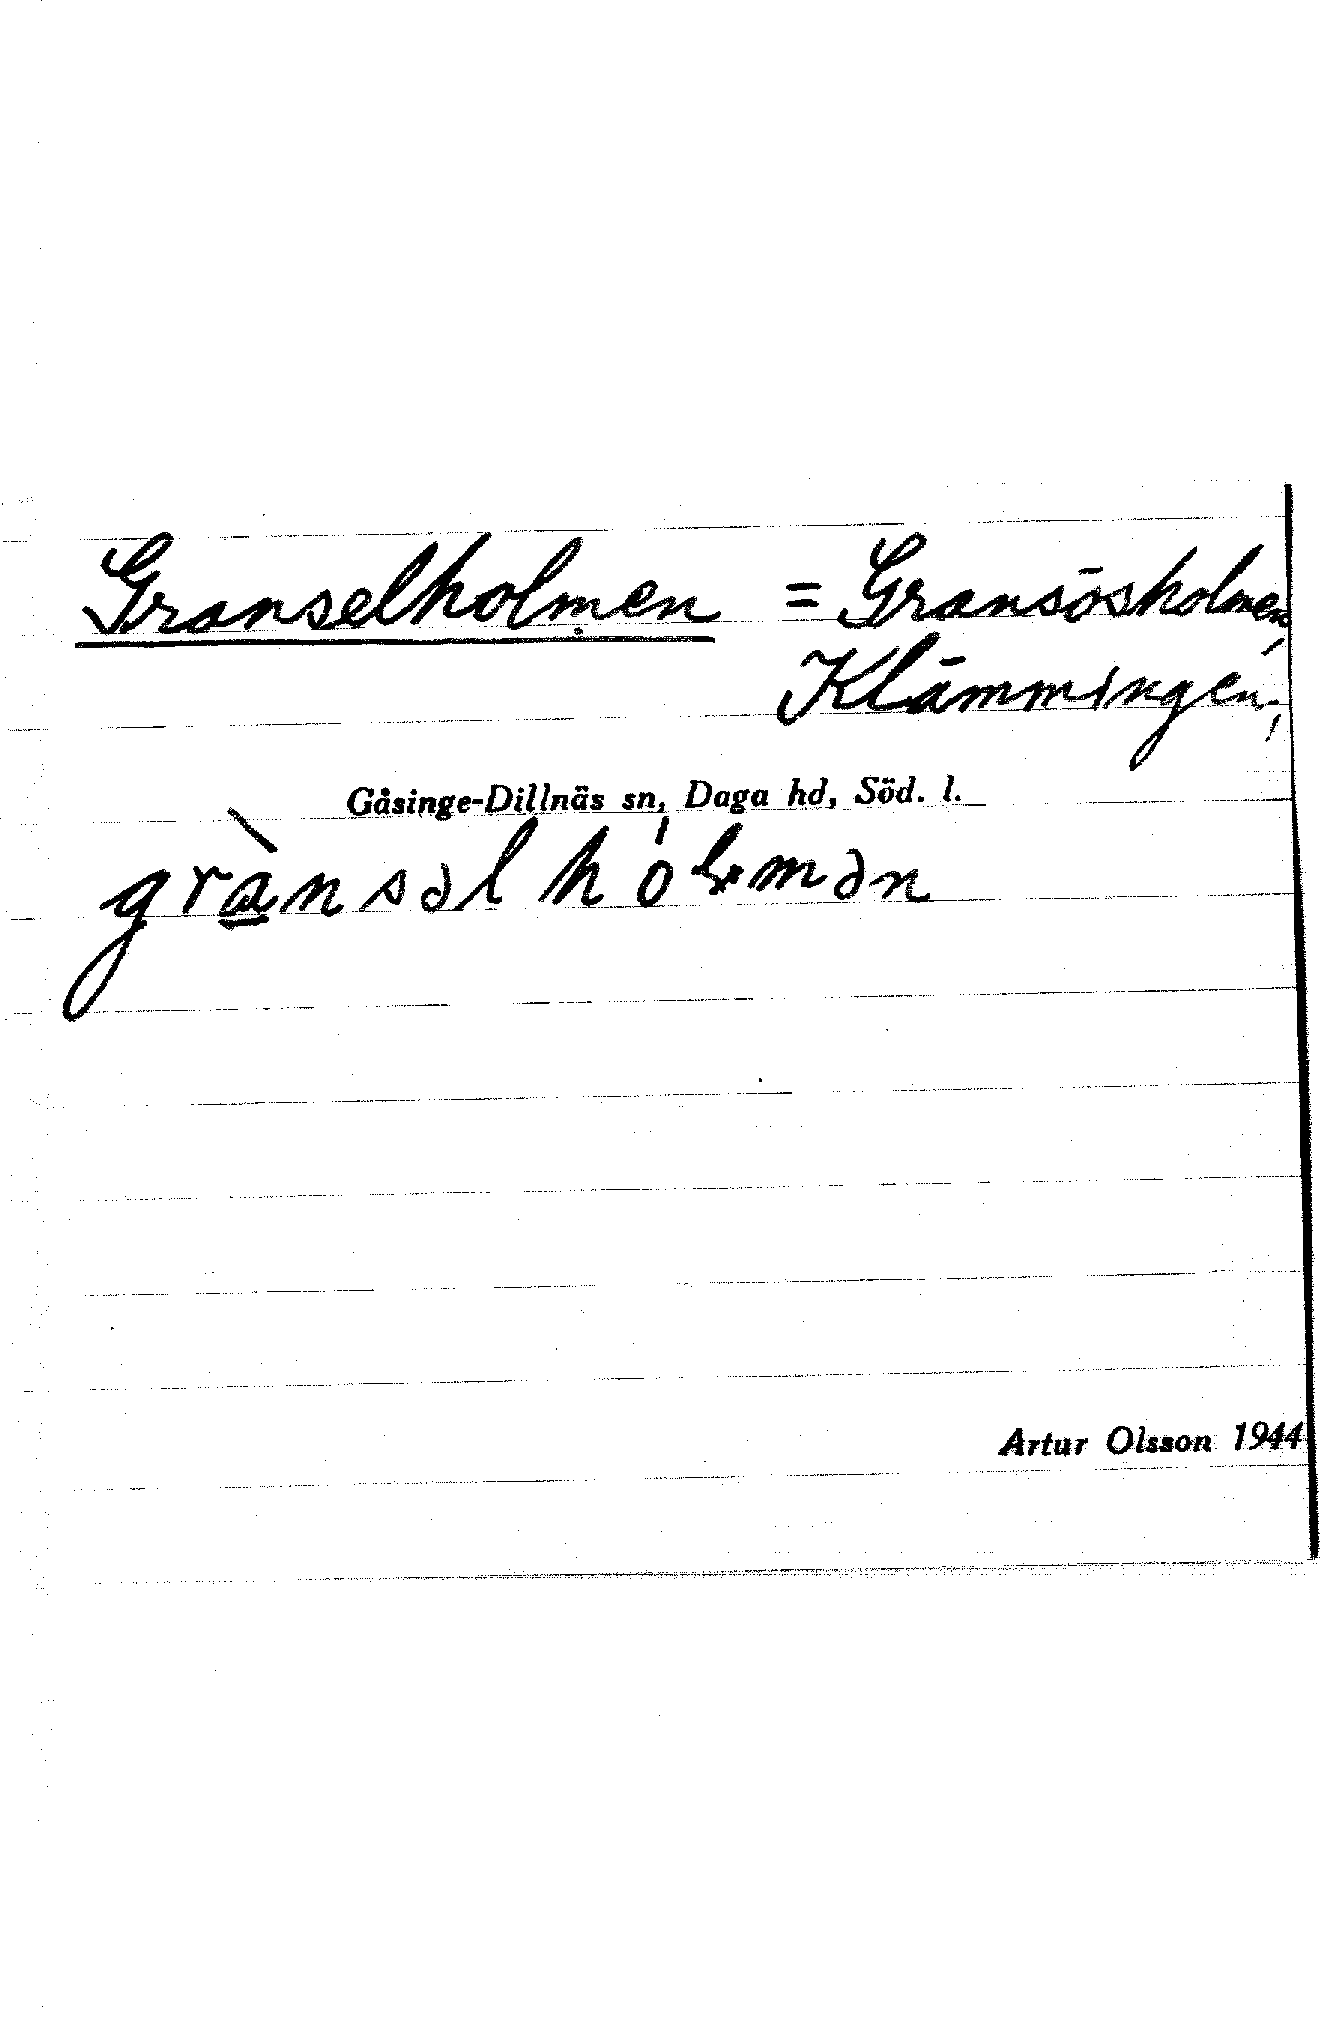 Granselholmen = Gransösholmen,
Klämmingen,
Gåsinge-Dillnäs sn, Daga hd, Söd. l.
grànsəl hólmən
Artur Olsson 1944